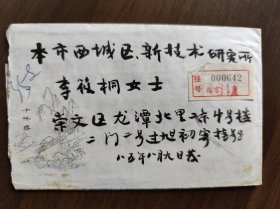 本市西城区、新技术研究所
李筱桐女士
注
号 000642
北京
崇文区龙潭北里二条4号楼
二门二号过旭初寄挂号
八五年八月九日发